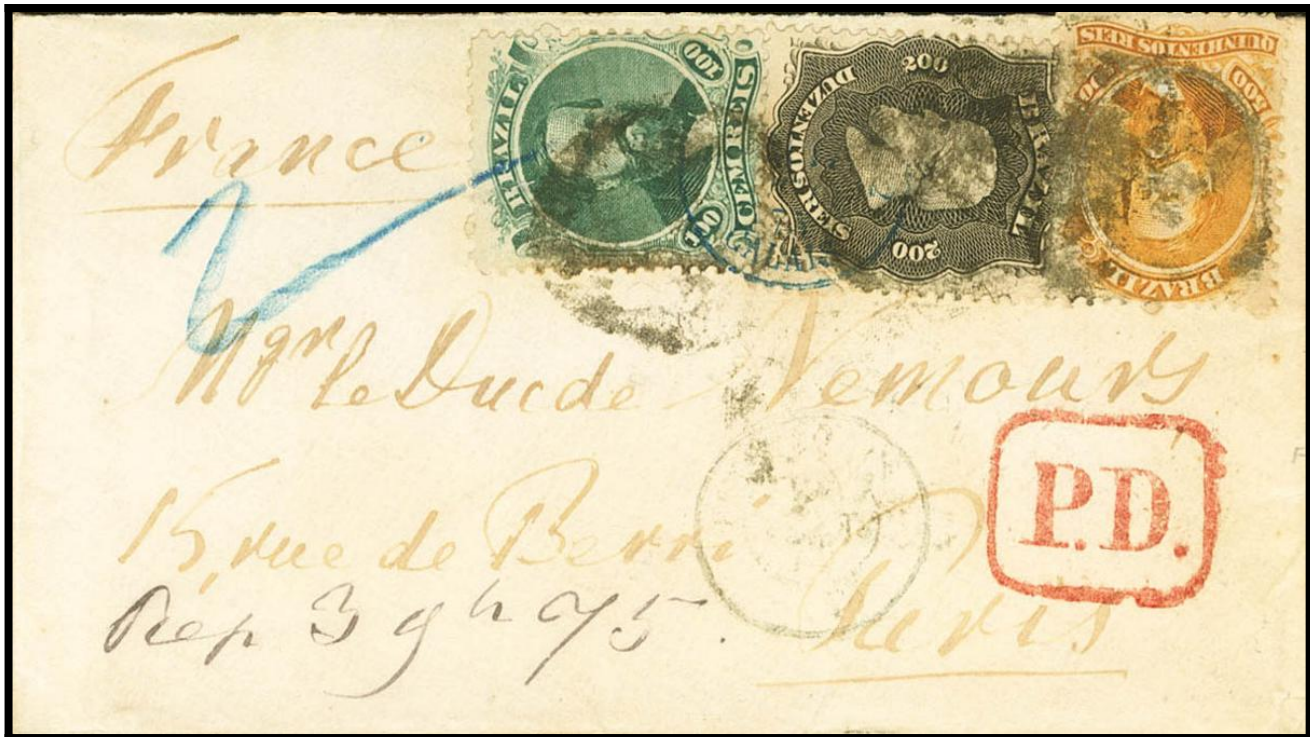 France
BRAZIL
100
CEM REIS
100
200
BRAZIL
DUZENTOS REIS
200
QUINHENTOS REIS
500
BRAZIL
2
Mgr le Duc de Nemours
15, rue de Berri
Paris
P.D.
Rep 3 9h 75.